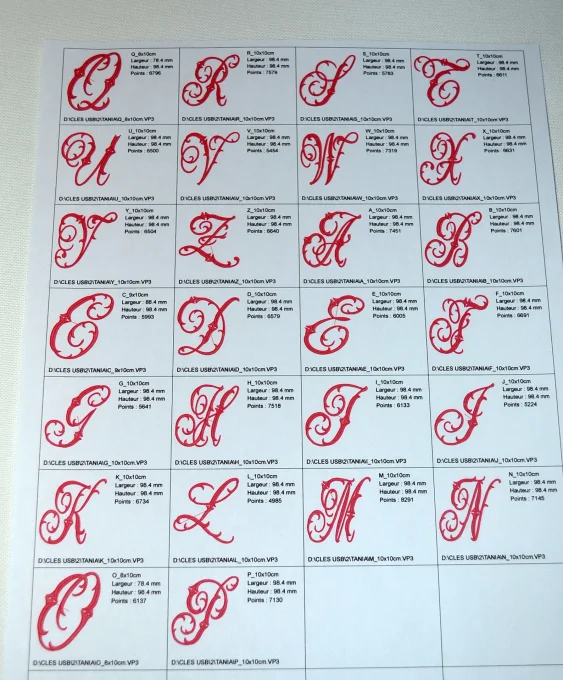 Q_8x10cm
Largeur : 78.4 mm
Hauteur : 98.4 mm
Points : 6796
D:\CLES USB\2\TANIA\Q_8x10cm.VP3
R_10x10cm
Largeur : 98.4 mm
Hauteur : 98.4 mm
Points : 7579
D:\CLES USB\2\TANIA\R_10x10cm.VP3
S_10x10cm
Largeur : 98.4 mm
Hauteur : 98.4 mm
Points : 5783
D:\CLES USB\2\TANIA\S_10x10cm.VP3
T_10x10cm
Largeur : 98.4 mm
Hauteur : 98.4 mm
Points : 6611
D:\CLES USB\2\TANIA\T_10x10cm.VP3
U_10x10cm
Largeur : 98.4 mm
Hauteur : 98.4 mm
Points : 6500
D:\CLES USB\2\TANIA\U_10x10cm.VP3
V_10x10cm
Largeur : 98.4 mm
Hauteur : 98.4 mm
Points : 5454
D:\CLES USB\2\TANIA\V_10x10cm.VP3
W_10x10cm
Largeur : 98.4 mm
Hauteur : 98.4 mm
Points : 7319
D:\CLES USB\2\TANIA\W_10x10cm.VP3
X_10x10cm
Largeur : 98.4 mm
Hauteur : 98.4 mm
Points : 6631
D:\CLES USB\2\TANIA\X_10x10cm.VP3
Y_10x10cm
Largeur : 98.4 mm
Hauteur : 98.4 mm
Points : 6504
D:\CLES USB\2\TANIA\Y_10x10cm.VP3
Z_10x10cm
Largeur : 98.4 mm
Hauteur : 98.4 mm
Points : 6640
D:\CLES USB\2\TANIA\Z_10x10cm.VP3
A_10x10cm
Largeur : 98.4 mm
Hauteur : 98.4 mm
Points : 7451
D:\CLES USB\2\TANIA\A_10x10cm.VP3
B_10x10cm
Largeur : 98.4 mm
Hauteur : 98.4 mm
Points : 7601
D:\CLES USB\2\TANIA\B_10x10cm.VP3
C_9x10cm
Largeur : 88.4 mm
Hauteur : 98.4 mm
Points : 5993
D:\CLES USB\2\TANIA\C_9x10cm.VP3
D_10x10cm
Largeur : 98.4 mm
Hauteur : 98.4 mm
Points : 6579
D:\CLES USB\2\TANIA\D_10x10cm.VP3
E_10x10cm
Largeur : 98.4 mm
Hauteur : 98.4 mm
Points : 6005
D:\CLES USB\2\TANIA\E_10x10cm.VP3
F_10x10cm
Largeur : 98.4 mm
Hauteur : 98.4 mm
Points : 6691
D:\CLES USB\2\TANIA\F_10x10cm.VP3
G_10x10cm
Largeur : 98.4 mm
Hauteur : 98.4 mm
Points : 5641
D:\CLES USB\2\TANIA\G_10x10cm.VP3
H_10x10cm
Largeur : 98.4 mm
Hauteur : 98.4 mm
Points : 7518
D:\CLES USB\2\TANIA\H_10x10cm.VP3
I_10x10cm
Largeur : 98.4 mm
Hauteur : 98.4 mm
Points : 6133
D:\CLES USB\2\TANIA\I_10x10cm.VP3
J_10x10cm
Largeur : 98.4 mm
Hauteur : 98.4 mm
Points : 5224
D:\CLES USB\2\TANIA\J_10x10cm.VP3
K_10x10cm
Largeur : 98.4 mm
Hauteur : 98.4 mm
Points : 6734
D:\CLES USB\2\TANIA\K_10x10cm.VP3
L_10x10cm
Largeur : 98.4 mm
Hauteur : 98.4 mm
Points : 4985
D:\CLES USB\2\TANIA\L_10x10cm.VP3
M_10x10cm
Largeur : 98.4 mm
Hauteur : 98.4 mm
Points : 8291
D:\CLES USB\2\TANIA\M_10x10cm.VP3
N_10x10cm
Largeur : 98.4 mm
Hauteur : 98.4 mm
Points : 7145
D:\CLES USB\2\TANIA\N_10x10cm.VP3
O_8x10cm
Largeur : 78.4 mm
Hauteur : 98.4 mm
Points : 6137
D:\CLES USB\2\TANIA\O_8x10cm.VP3
P_10x10cm
Largeur : 98.4 mm
Hauteur : 98.4 mm
Points : 7130
D:\CLES USB\2\TANIA\P_10x10cm.VP3